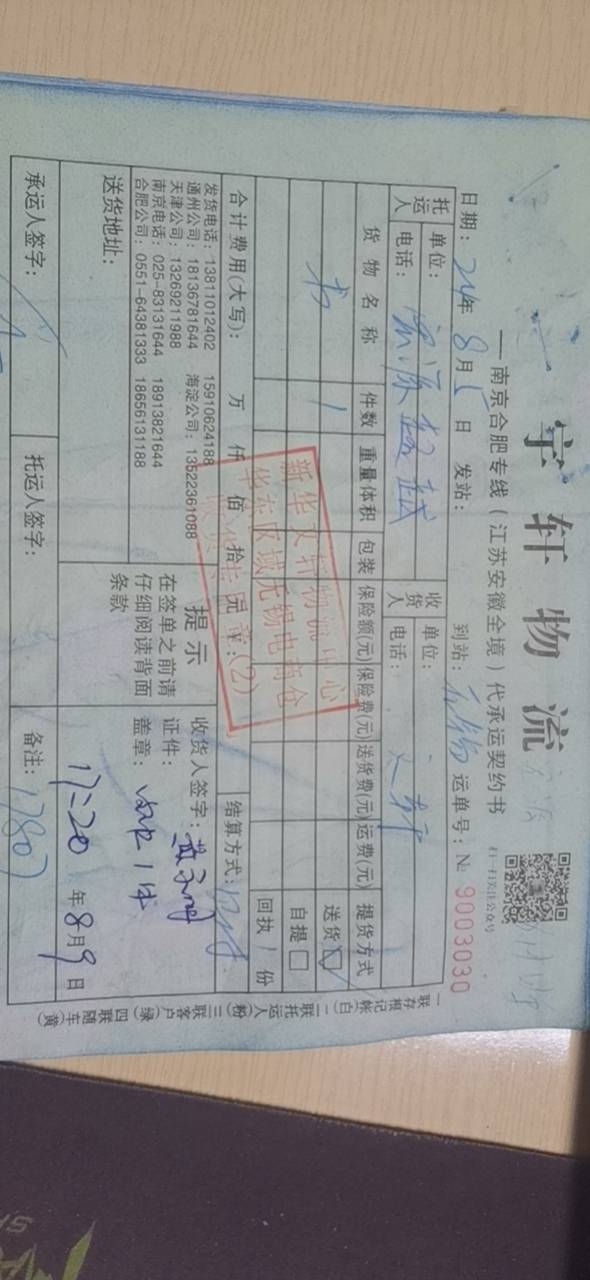 一宇轩物流
—南京合肥专线（江苏安徽全境）代承运契约书
扫一扫关注公众号
日期：24年 8月 日 发站： 到站：无锡 运单号：№ 9003030
托运人 单位： 收货人 单位：
电话： 电话： 文轩
货物名称 件数 重量体积 包装 保险额(元) 保险费(元) 送货费(元) 运费(元) 提货方式
书 1 送货☑
自提□
回执1份
合计费用(大写)： 万 仟 佰 拾 元 结算方式：
新华文轩物流中心
华东区域无锡电商仓
收货专用章(2)
发货电话：13811012402 15910624188
通州公司：18136781644 海淀公司：13522361088
天津公司：13269211988
南京电话：025-83131644 18913821644
合肥公司：0551-64381333 18656131188
提示
在签单之前请
仔细阅读背面
条款
收货人签字：
证件：
盖章： 收1件
17:20 年8月9日
送货地址：
承运人签字： 托运人签字： 备注：
一联存根记帐(白) 二联托运人(粉) 三联客户(绿) 四联随车(黄)